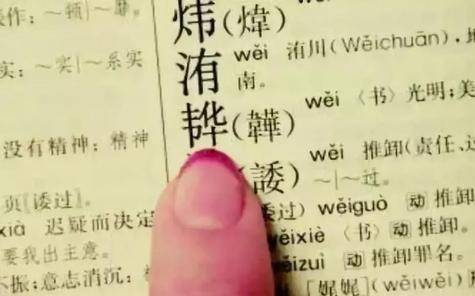 作:~顿|~靡。
实:~实|~系实
没有精神:精神
页
xià 迟疑而决定
要我出主意。
不振;意志消沉:
炜(煒)
洧 wěi 洧川(Wěichuān),地
南。
(韡) wěi 〈书〉光明;美
(諉) wěi 推卸(责任、过
~|~过。
过)wěiguò 动 推卸
wěixiè 〈书〉动 推卸
wěizuì 动 推卸罪名。
[娓娓](wěiwěi)